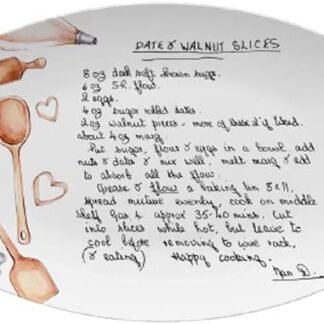 DATE & WALNUT SLICES
8 oz dark soft brown sugar.
6 oz S.R. flour.
2 eggs.
4 oz sugar rolled dates.
2 oz walnut pieces - more of these if liked.
about 4 oz marg.
Put sugar, flour & eggs in a bowl, add
nuts & dates & mix well, melt marg & add
to absorb all the flour.
Grease & flour a baking tin 8 x 11,
spread mixture evenly, cook on middle
shelf gas 4 approx 35-40 mins. Cut
into slices while hot, but leave to
cool before removing to wire rack,
(& eating) Happy cooking.
Nan D.